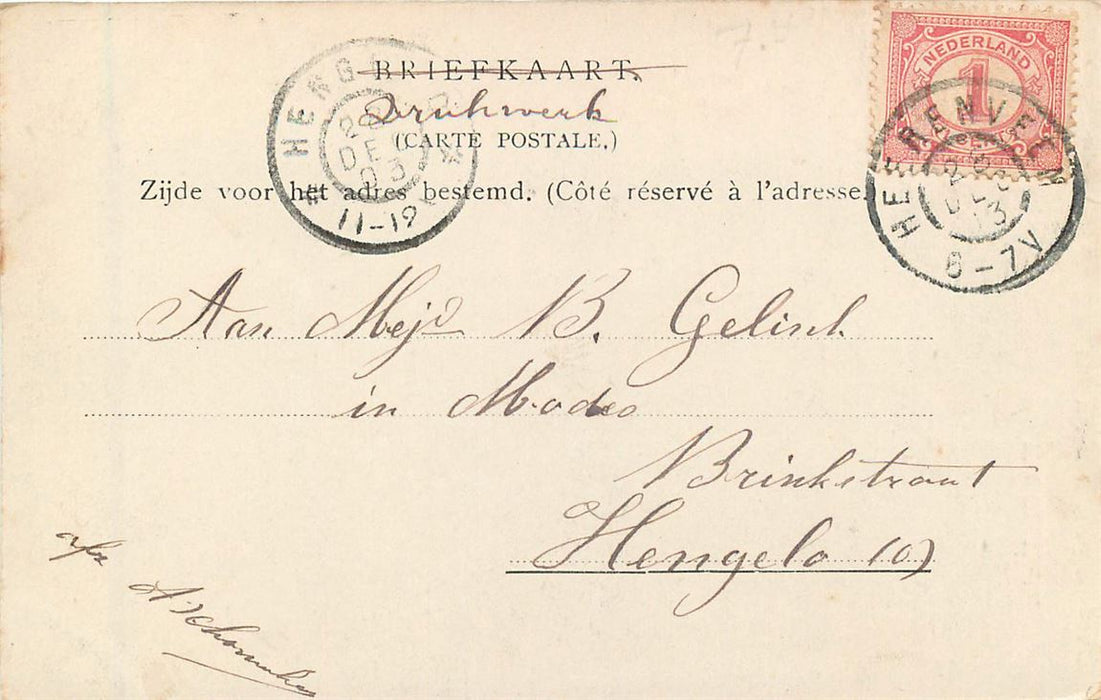 NEDERLAND
1
CENT
HEERENVEEN
DEC
03
6-7V
HENGELO
DEC
03
11-12
BRIEFKAART.
Drukwerk
(CARTE POSTALE.)
Zijde voor het adres bestemd. (Côté réservé à l'adresse.)
Aan Mejd B. Gelink
in Modes
Brinkstraat
Hengelo (O)
afz